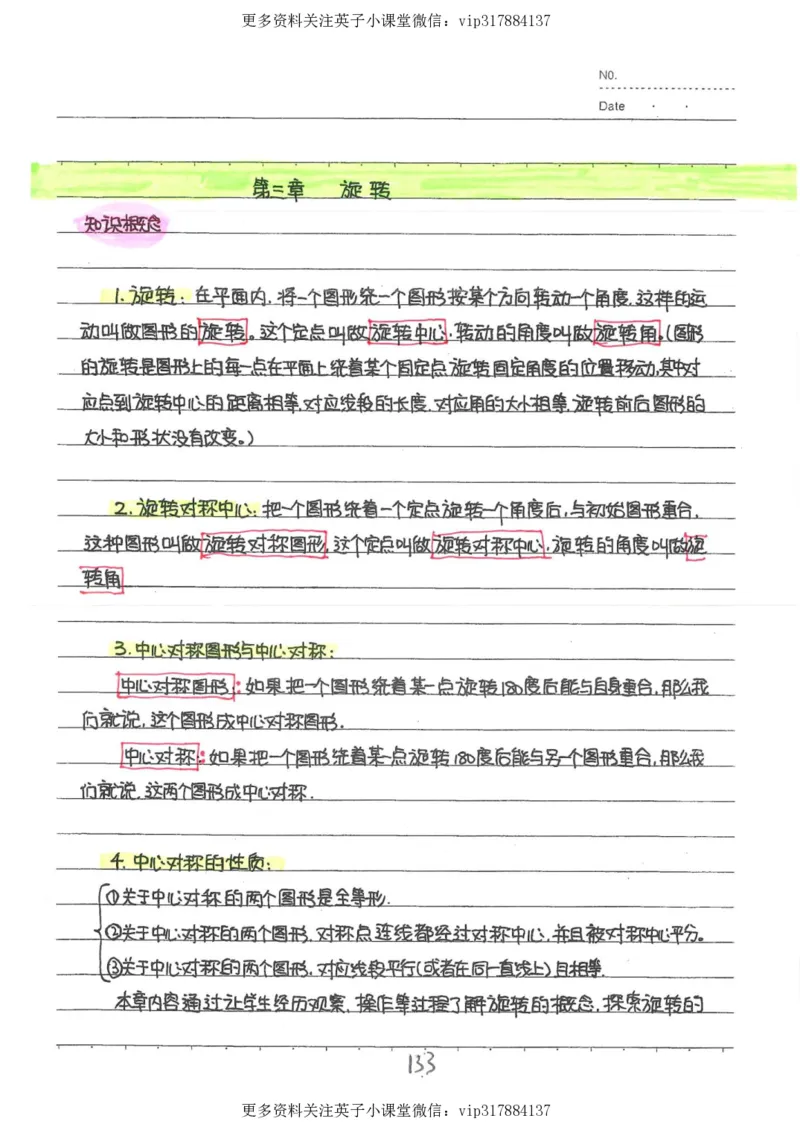 更多资料关注英子小课堂微信：vip317884137
NO.
Date
第三章 旋转
知识概念
1.旋转：在平面内，将一个图形绕一个图形按某个方向转动一个角度，这样的运
动叫做图形的旋转。这个定点叫做旋转中心，转动的角度叫做旋转角。(图形
的旋转是图形上的每一点在平面上绕着某个固定点旋转固定角度的位置移动，其中对
应点到旋转中心的距离相等，对应线段的长度、对应角的大小相等，旋转前后图形的
大小和形状没有改变。)
2.旋转对称中心：把一个图形绕着一个定点旋转一个角度后，与初始图形重合，
这种图形叫做旋转对称图形，这个定点叫做旋转对称中心，旋转的角度叫做旋
转角
3.中心对称图形与中心对称：
中心对称图形：如果把一个图形绕着某一点旋转180度后能与自身重合，那么我
们就说，这个图形成中心对称图形.
中心对称：如果把一个图形绕着某一点旋转180度后能与另一个图形重合，那么我
们就说，这两个图形成中心对称.
4.中心对称的性质：
①关于中心对称的两个图形是全等形.
②关于中心对称的两个图形，对称点连线都经过对称中心，并且被对称中心平分。
③关于中心对称的两个图形，对应线段平行(或者在同一直线上)且相等.
本章内容通过让学生经历观察，操作等过程了解旋转的概念，探索旋转的
133
更多资料关注英子小课堂微信：vip317884137